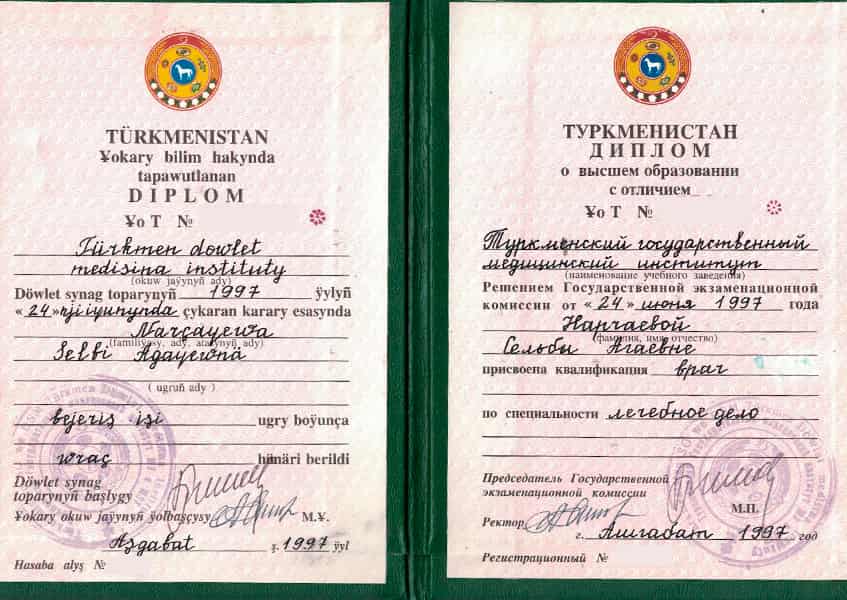 TÜRKMENISTAN
Ɏokary bilim hakynda
tapawutlanan
DIPLOM
Ɏo T №
Türkmen dowlet
medisina instituty
(okuw jaýynyň ady)
Döwlet synag toparynyň 1997 ýylyň
«24» nji iýunynda çykaran karary esasynda
Narçaýewa
(familiýasy, ady, atasynyň ady)
Selbi Agaýewna
(ugruň ady)
bejeriş işi ugry boýunça
wraç hünäri berildi
Döwlet synag
toparynyň başlygy
Ɏokary okuw jaýynyň ýolbaşçysy M.Ɏ.
Aşgabat ş. 1997 ýyl
Hasaba alyş №
ТУРКМЕНИСТАН
ДИПЛОМ
о высшем образовании
с отличием
Ɏo T №
Туркменский государственный
медицинский институт
(наименование учебного заведения)
Решением Государственной экзаменационной
комиссии от «24» июня 1997 года
Нарчаевой
(фамилия, имя, отчество)
Сельби Агаевне
присвоена квалификация врач
по специальности лечебное дело
Председатель Государственной
экзаменационной комиссии
М.П.
Ректор
г. Ашгабат 1997 год
Регистрационный №